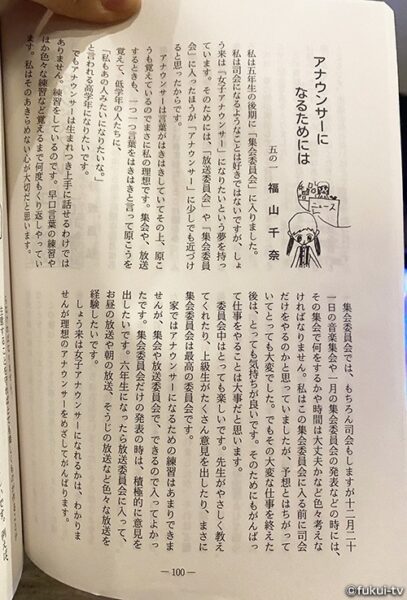 アナウンサーに
なるためには
五の一　福山千奈
ニュース
私は五年生の後期に「集会委員会」に入りました。
私は司会になるようなことは好きではないですが、しょ
う来は『女子アナウンサー』になりたいという夢を持っ
ています。そのためには、「放送委員会」や「集会委員
会」に入ったほうが「アナウンサー」に少しでも近づけ
ると思ったからです。
アナウンサーは言葉がはきはきしていてその上、原こ
うも覚えているのでまさに私の理想です。集会や、放送
するときも、一つ一つ言葉をはきはきと言って原こうを
覚えて、低学年の人たちに、
「私もあの人みたいになりたいな。」
と言われる高学年になりたいです。
でもアナウンサーは生まれつき上手に話せるわけでは
ありません。練習をしているのです。早口言葉の練習や
は色々な練習など覚えるまで何度もくり返しやってい
ます。私はそのあきらめない心が大切だと思います。
集会委員会では、もちろん司会もしますが十二月二十
一日の音楽集会や一月の集会委員会の発表などの時には、
その集会で何をするかや時間は大丈夫かなど色々考えな
ければなりません。私はこの集会委員会に入る前に司会
だけをやるのかと思っていましたが、予想とはちがって
いてとっても大変でした。でもその大変な仕事を終えた
後は、とっても気持ちが良いです。そのためにもがんばっ
て仕事をやることは大事だと思います。
委員会中はとっても楽しいです。先生がやさしく教え
てくれたり、上級生がたくさん意見を出したり、まさに
集会委員会は最高の委員会です。
家ではアナウンサーになるための練習はあまりできま
せんが、集会や放送委員会で、できるので入ってよかっ
たです。集会委員会だけの発表の時は、積極的に意見を
出したいです。六年生になったら放送委員会に入って、
お昼の放送や朝の放送、そうじの放送など色々な放送を
経験したいです。
しょう来は女子アナウンサーになれるかは、わかりま
せんが理想のアナウンサーをめざしてがんばります。
— 100 —
©fukui-tv